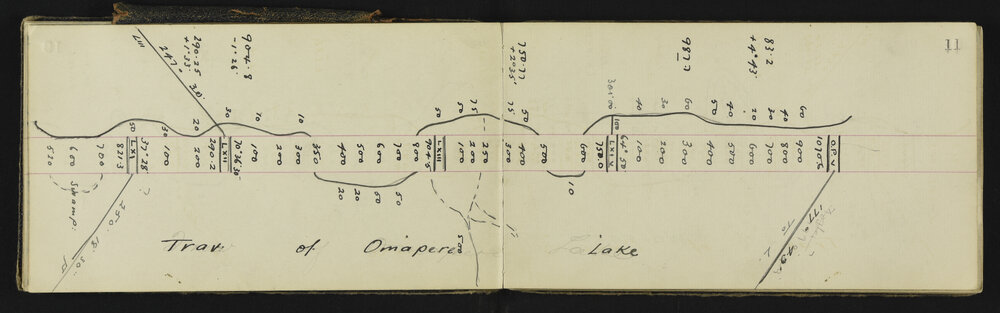 11
247°
290.25
+1°33'
904.8
-1°26'
750.77
+2°35'
9877
83.2
+4°43'
50
30
20
30
10
10
50
50
75
75
50
301.00
100
40
30
60
50
40
20
30
40
60
520
600
700
821.3
LXI
37° 28'
100
200
290.2
LXII
70° 36' 30"
100
200
300
350
400
500
600
700
800
904.5
LXIII
100
200
250
300
400
500
600
750.0
LXIV
64° 50'
100
200
300
400
500
600
700
800
900
1070.6
O.R.V
20
20
50
50
10
Swamp
250° 18' 30"
500
Trav. of Omapere Lake
177°
To